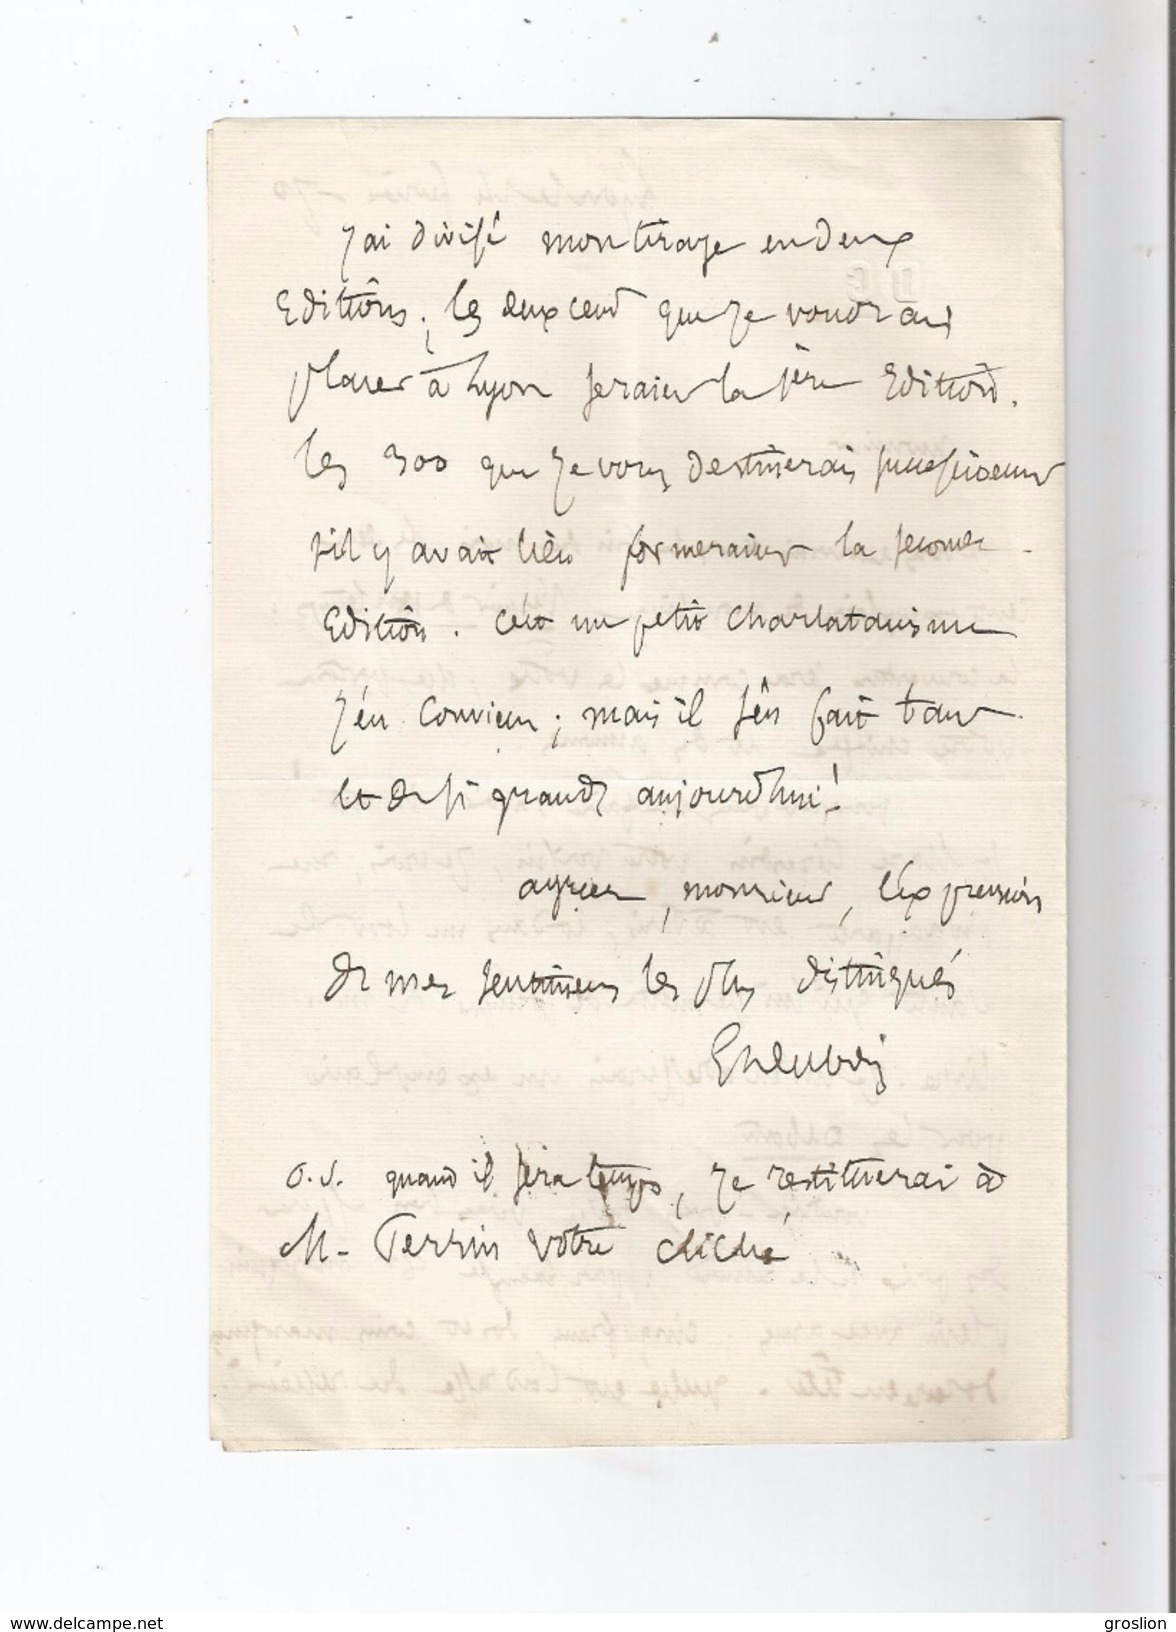 J'ai divisé mon tirage en deux
Editions ; les deux cent que je voudrais
placer à Lyon seraient la 1ère Edition.
les 300 que je vous destinerais successivement
s'il y avait lieu formeraient la seconde
Edition. C'est un petit charlatanisme
j'en conviens ; mais il s'en fait tant
et de si grands aujourd'hui !
agréez, monsieur, l'expression
de mes sentiments les plus distingués
P.S. quand il sera temps, je restituerai à
M. Perrin votre cliché
www.delcampe.net
groslion